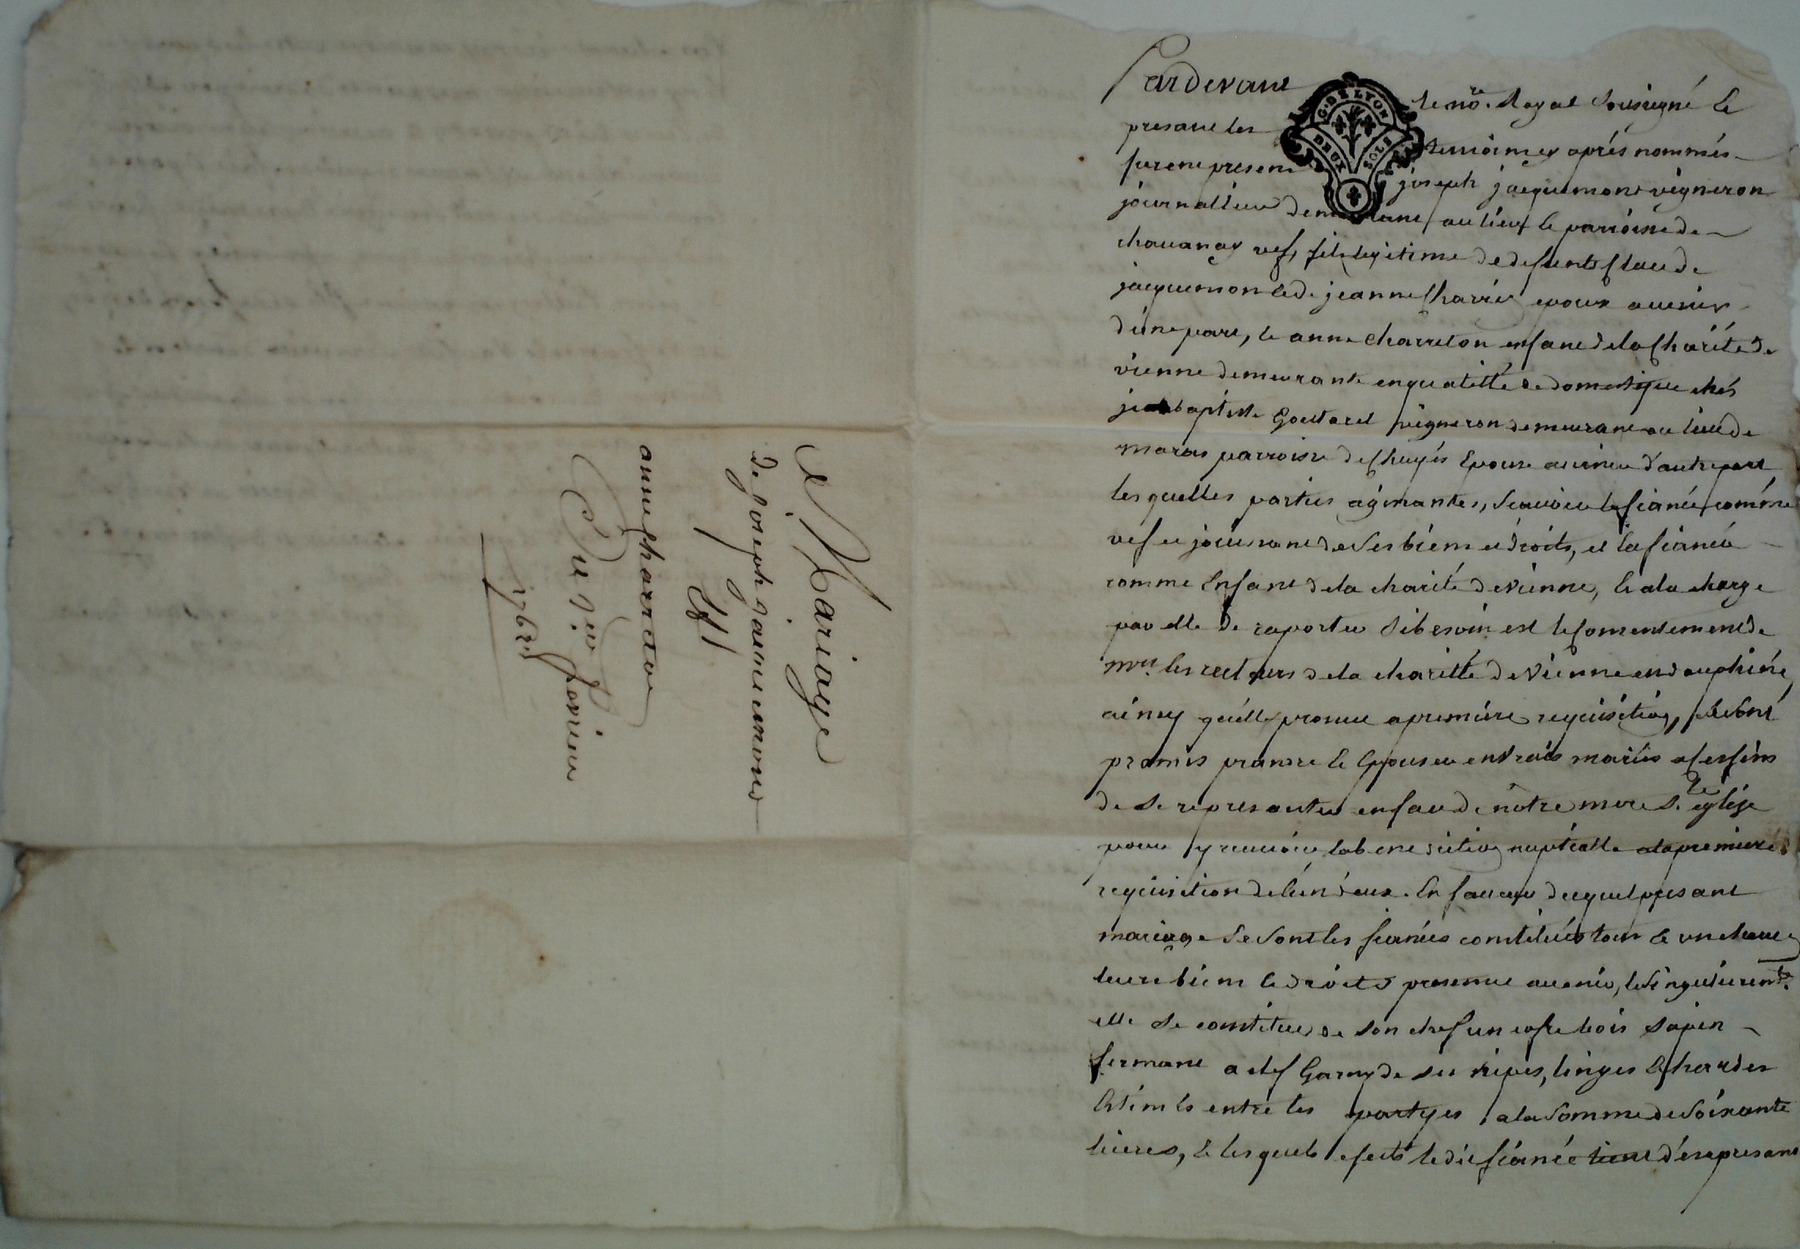 Pardevant le no.re Royal Sousigné Et
presant les temoins cy aprés nommés
furent presens joseph jacquemont vigneron
journallier demeurant au lieu et parroisse de
chavanay vef, fils legitime de deffunts Claude
jacquemon et de jeanne Charrés epoux avenir
d'une part, et anne charreton enfant de la Charité de
vienne demeurante en qualitté de domestique chés
jean baptiste goutarel vigneron demeurant au lieu de
maras parroisse de Chuyés Epouse avenir d'autre part
les quelles parties agissantes, scavoir le fiancé comme
vef et jouissant de ses biens et droits, et la fiancée
comme Enfant de la charité de vienne, Et a la charge
par elle de raporter si besoin est le consentement de
mrs. les recteurs de la charitté de vienne en dauphiné
ainsy qu'elle promet a premiere requisition, se sont
promis prandre Et Epouser en vrais mariés a ces fins
de se represanter en face de notre mere Ste eglise
pour y recevoir la benediction nuptialle a la premiere
requisition de l'un d'eux. En faveur duquel presant
mariage se sont les fiancés constitués tous Et un chacuns
leurs biens Et droits presents avenir, Et singulierem.t
elle se constitue de son chef un cofre bois sapin
fermant a clef Garny de ses nipes, linges Et hardes
Estimés entre les partyes a la somme de soixante
livres, Et les quels efects le dit fiancé des a presant
Mariage
de Joseph jacquemond
Et
anne charreton
Du
1762